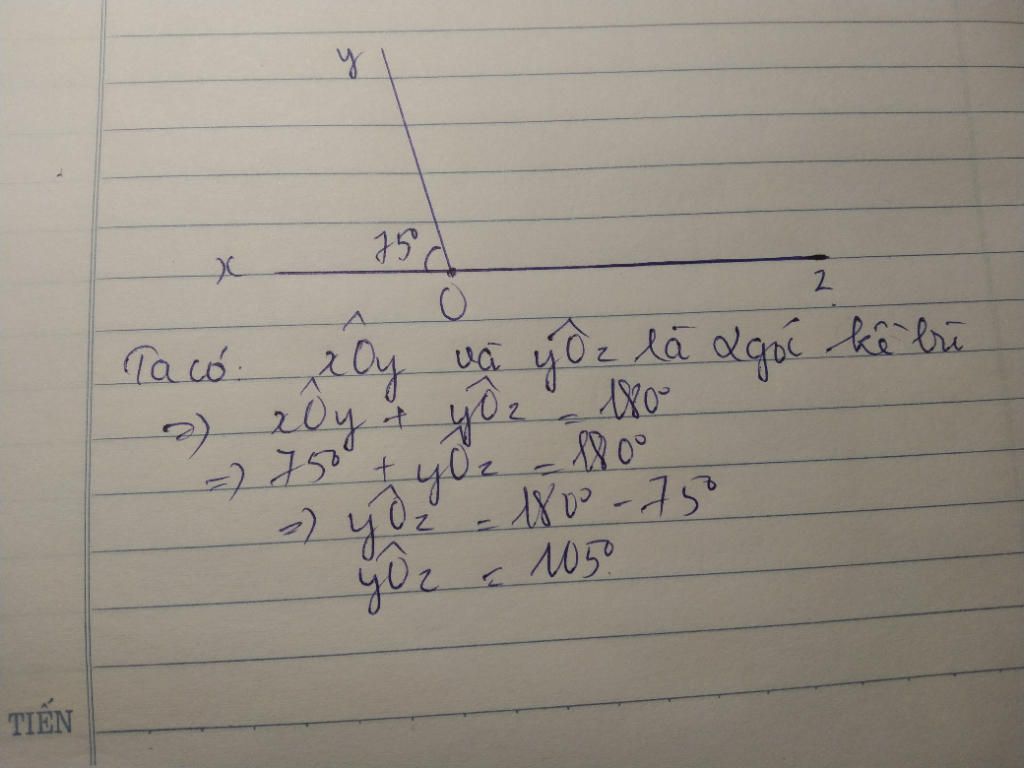 y
75°
x
O
z
Ta có: xÔy và yÔz là 2 góc kề bù
=> xÔy + yÔz = 180°
=> 75° + yÔz = 180°
=> yÔz = 180° - 75°
yÔz = 105°
TIẾN